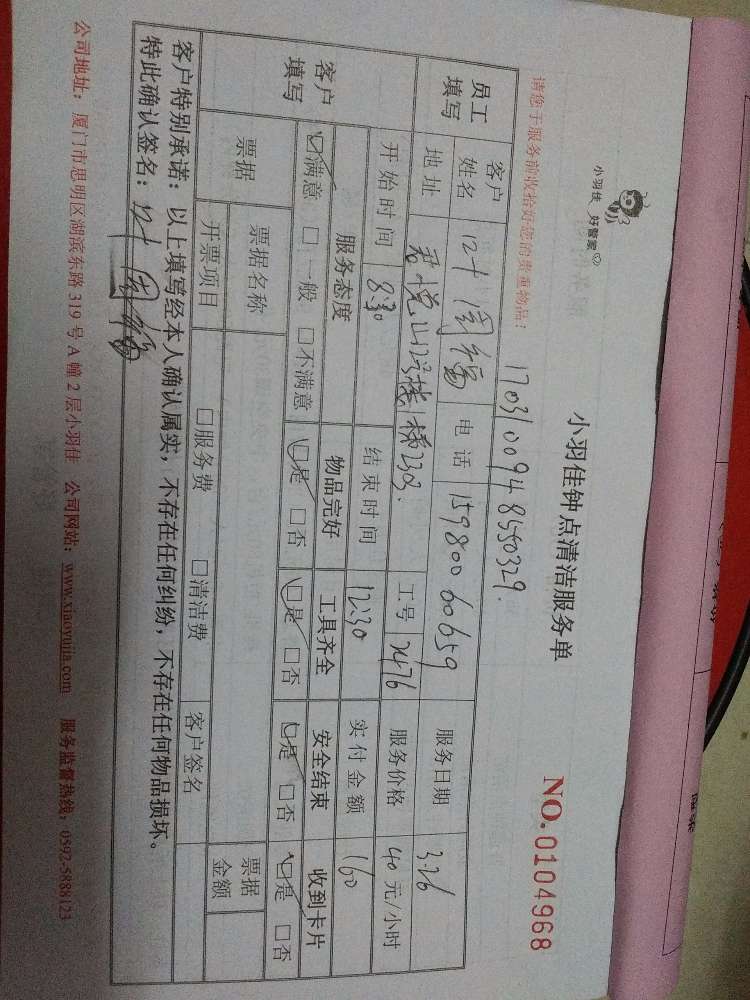 小羽佳 好管家
小羽佳钟点清洁服务单
NO.0104968
请您于服务前收拾好您的贵重物品!
1703100948550329.
员工填写 客户姓名 电话 15980060659 服务日期 3.26
地址 君悦山12号楼1梯203. 工号 2476 服务价格 40元/小时
开始时间 8:30 结束时间 12:30 实付金额 160
客户填写 服务态度 物品完好 工具齐全 安全结束 收到卡片
☑满意 □一般 □不满意 ☑是 □否 ☑是 □否 ☑是 □否 ☑是 □否
票据 票据名称 票据金额
开票项目 □服务费 □清洁费 客户签名
客户特别承诺:以上填写经本人确认属实,不存在任何纠纷,不存在任何物品损坏。
特此确认签名:
公司地址:厦门市思明区湖滨东路319号A幢2层小羽佳 公司网站:www.xiaoyujia.com 服务监督热线:0592-5888123